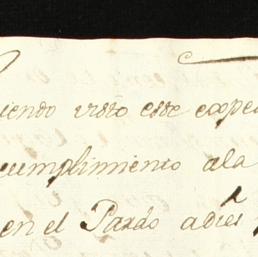 iendo visto esse expe
cumplimiento ala
en el Pardo adies